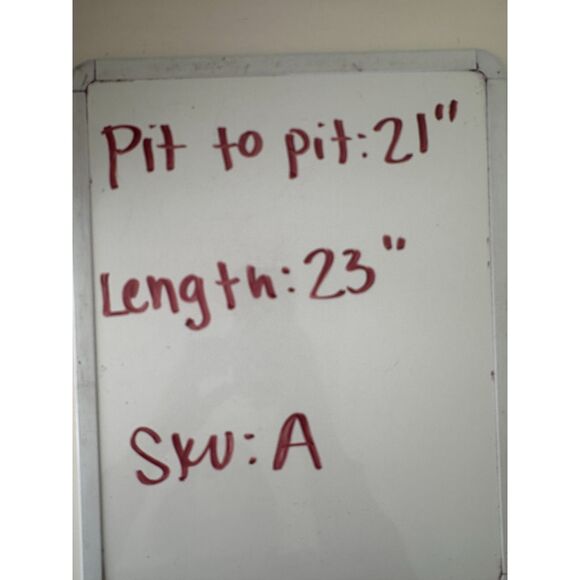 Pit to pit: 21"
Length: 23"
SKU: A